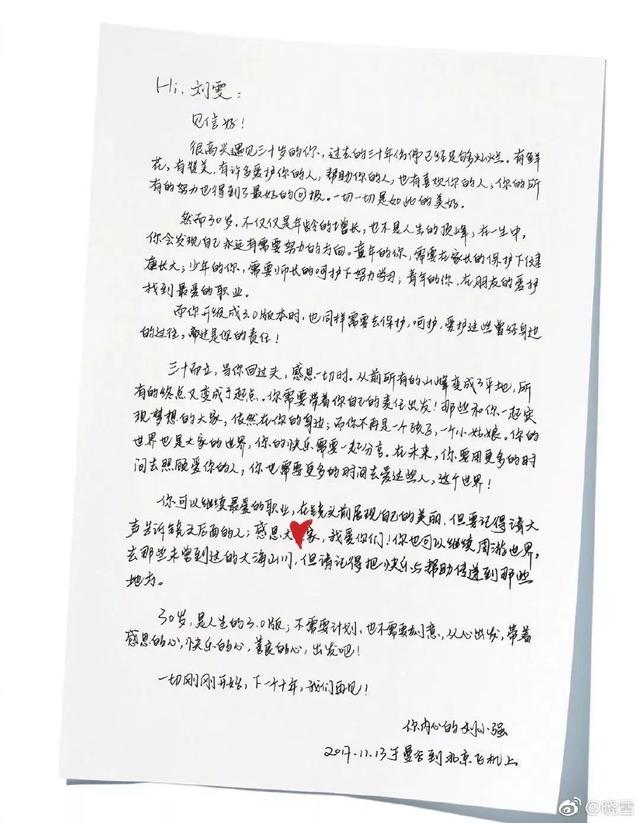 Hi, 刘雯:
见信好!
很高兴遇见三十岁的你，过去的三十年仿佛已经足够灿烂。有鲜
花，有赞美，有许多爱护你的人，帮助你的人，也有喜欢你的人，你的所
有的努力也得到了最好的回报。一切一切是如此的美好。
然而30岁，不仅仅是年龄的增长，也不是人生的顶峰，在一生中，
你会发现自己永远有需要努力的方向。童年的你，需要在家长的保护下健
康长大；少年的你，需要师长的呵护下努力学习；青年的你，在朋友的爱护
找到最爱的职业。
而你升级成3.0版本时，也同样需要去保护，呵护，爱护这些曾经身边
的过往，而这是你的责任!
三十而立，当你回过头，感恩一切时。从前所有的山峰变成了平地，所
有的终点又变成了起点。你需要带着你自己的责任出发!那些和你一起实
现梦想的大家，依然在你的身边；而你不再是一个孩子，一个小姑娘。你的
世界也是大家的世界，你的快乐需要一起分享。在未来，你要用更多的时
间去照顾爱你的人，你也需要更多的时间去爱这些人，这个世界!
你可以继续最爱的职业，在镜头前展现自己的美丽，但要记得请大
声告诉镜头后面的人；感恩大家，我爱你们!你也可以继续周游世界，
去那些未曾到过的大海山川，但请记得把快乐与帮助传递到那些
地方。
30岁，是人生的3.0版；不需要计划，也不需要刻意，从心出发，带着
感恩的心，快乐的心，善良的心，出发吧!
一切刚刚开始，下一个十年，我们再见!
你内心的刘小强
2017.11.13于曼谷到北京飞机上
@晓雪